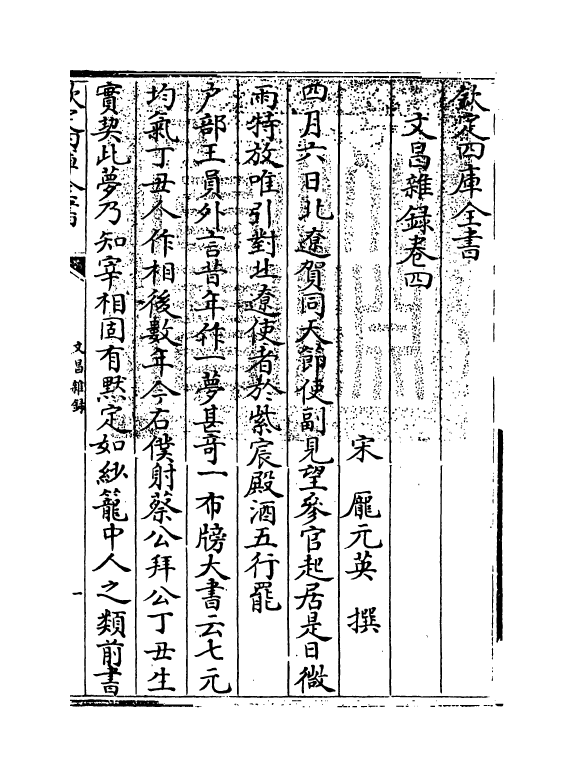 欽定四庫全書
文昌雜錄卷四
宋 龎元英 撰
四月六日北遼賀同天節使副見望參官起居是日微
雨特放唯引對北遼使者於紫宸殿酒五行罷
户部王員外言昔年作一夢甚奇一布牓大書云七元
均氣丁丑人作相後數年今右僕射蔡公拜公丁丑生
實契此夢乃知宰相固有默定如紗籠中人之類前書
欽定四庫全書
文昌雜錄
一